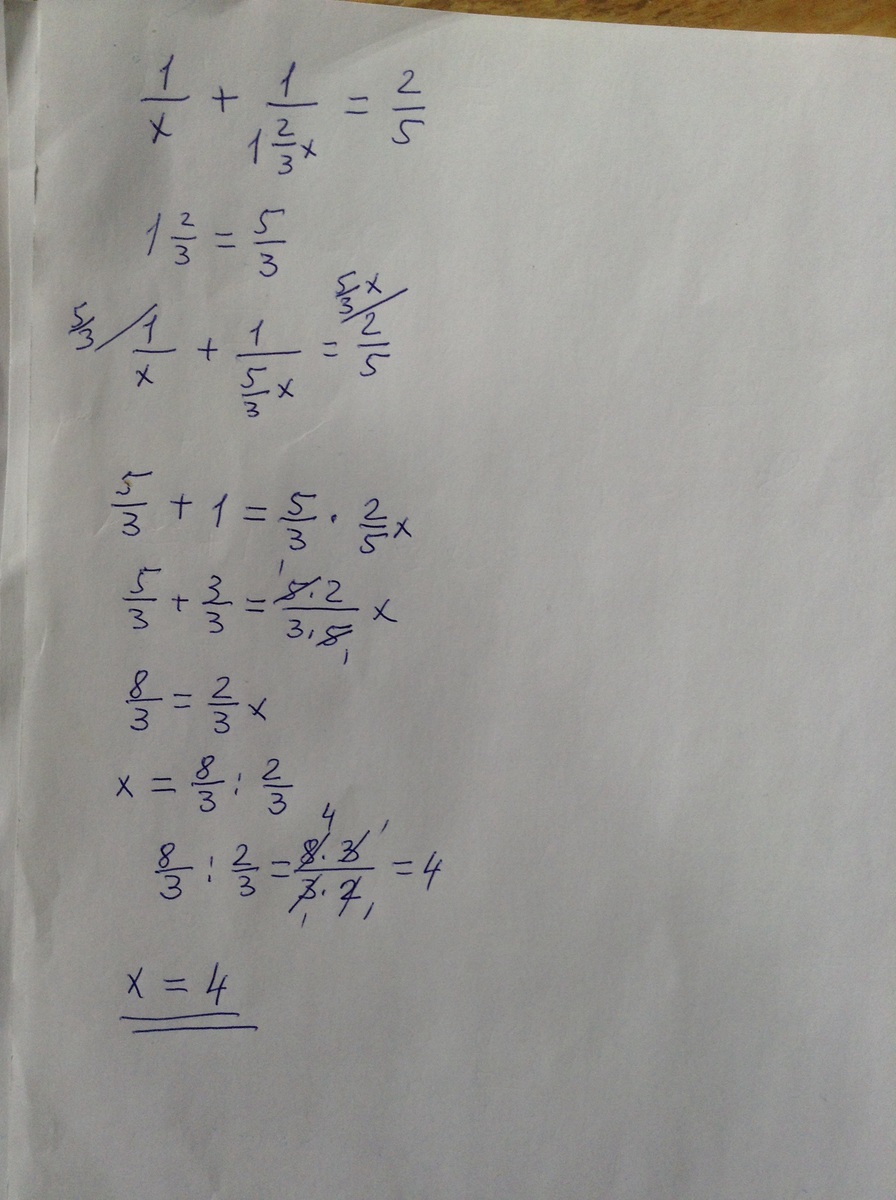 1/x + 1/(1 2/3 x) = 2/5
1 2/3 = 5/3
5/3 / 1/x + 1/(5/3 x) = 5/3 x / 2/5
5/3 + 1 = 5/3 · 2/5 x
5/3 + 3/3 = (5·2)/(3·5) x
8/3 = 2/3 x
x = 8/3 : 2/3
8/3 : 2/3 = (8·3)/(3·2) = 4
x = 4